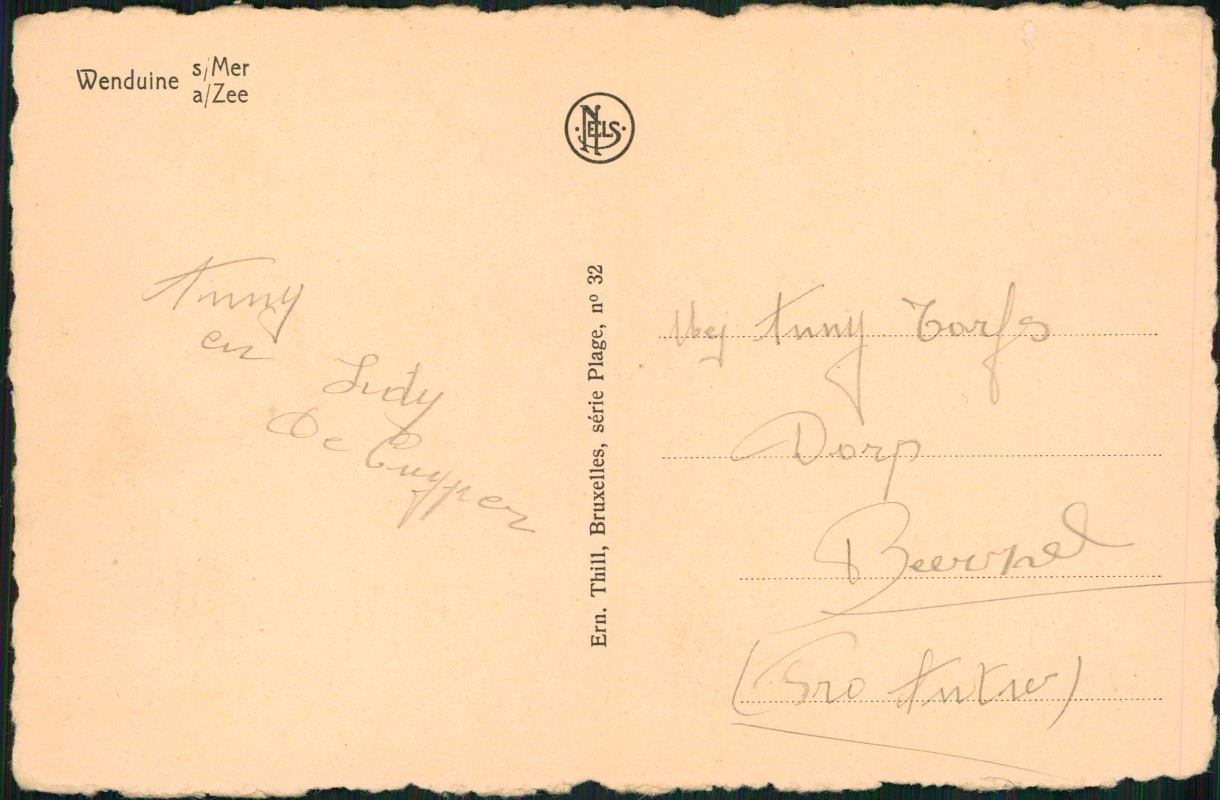 Wenduine s/Mer
a/Zee
NELS
Anny
en
Lidy
De Cuyper
Ern. Thill, Bruxelles, série Plage, nº 32
Mej Anny Torfs
Dorp
Beerzel
(Pro Antw)